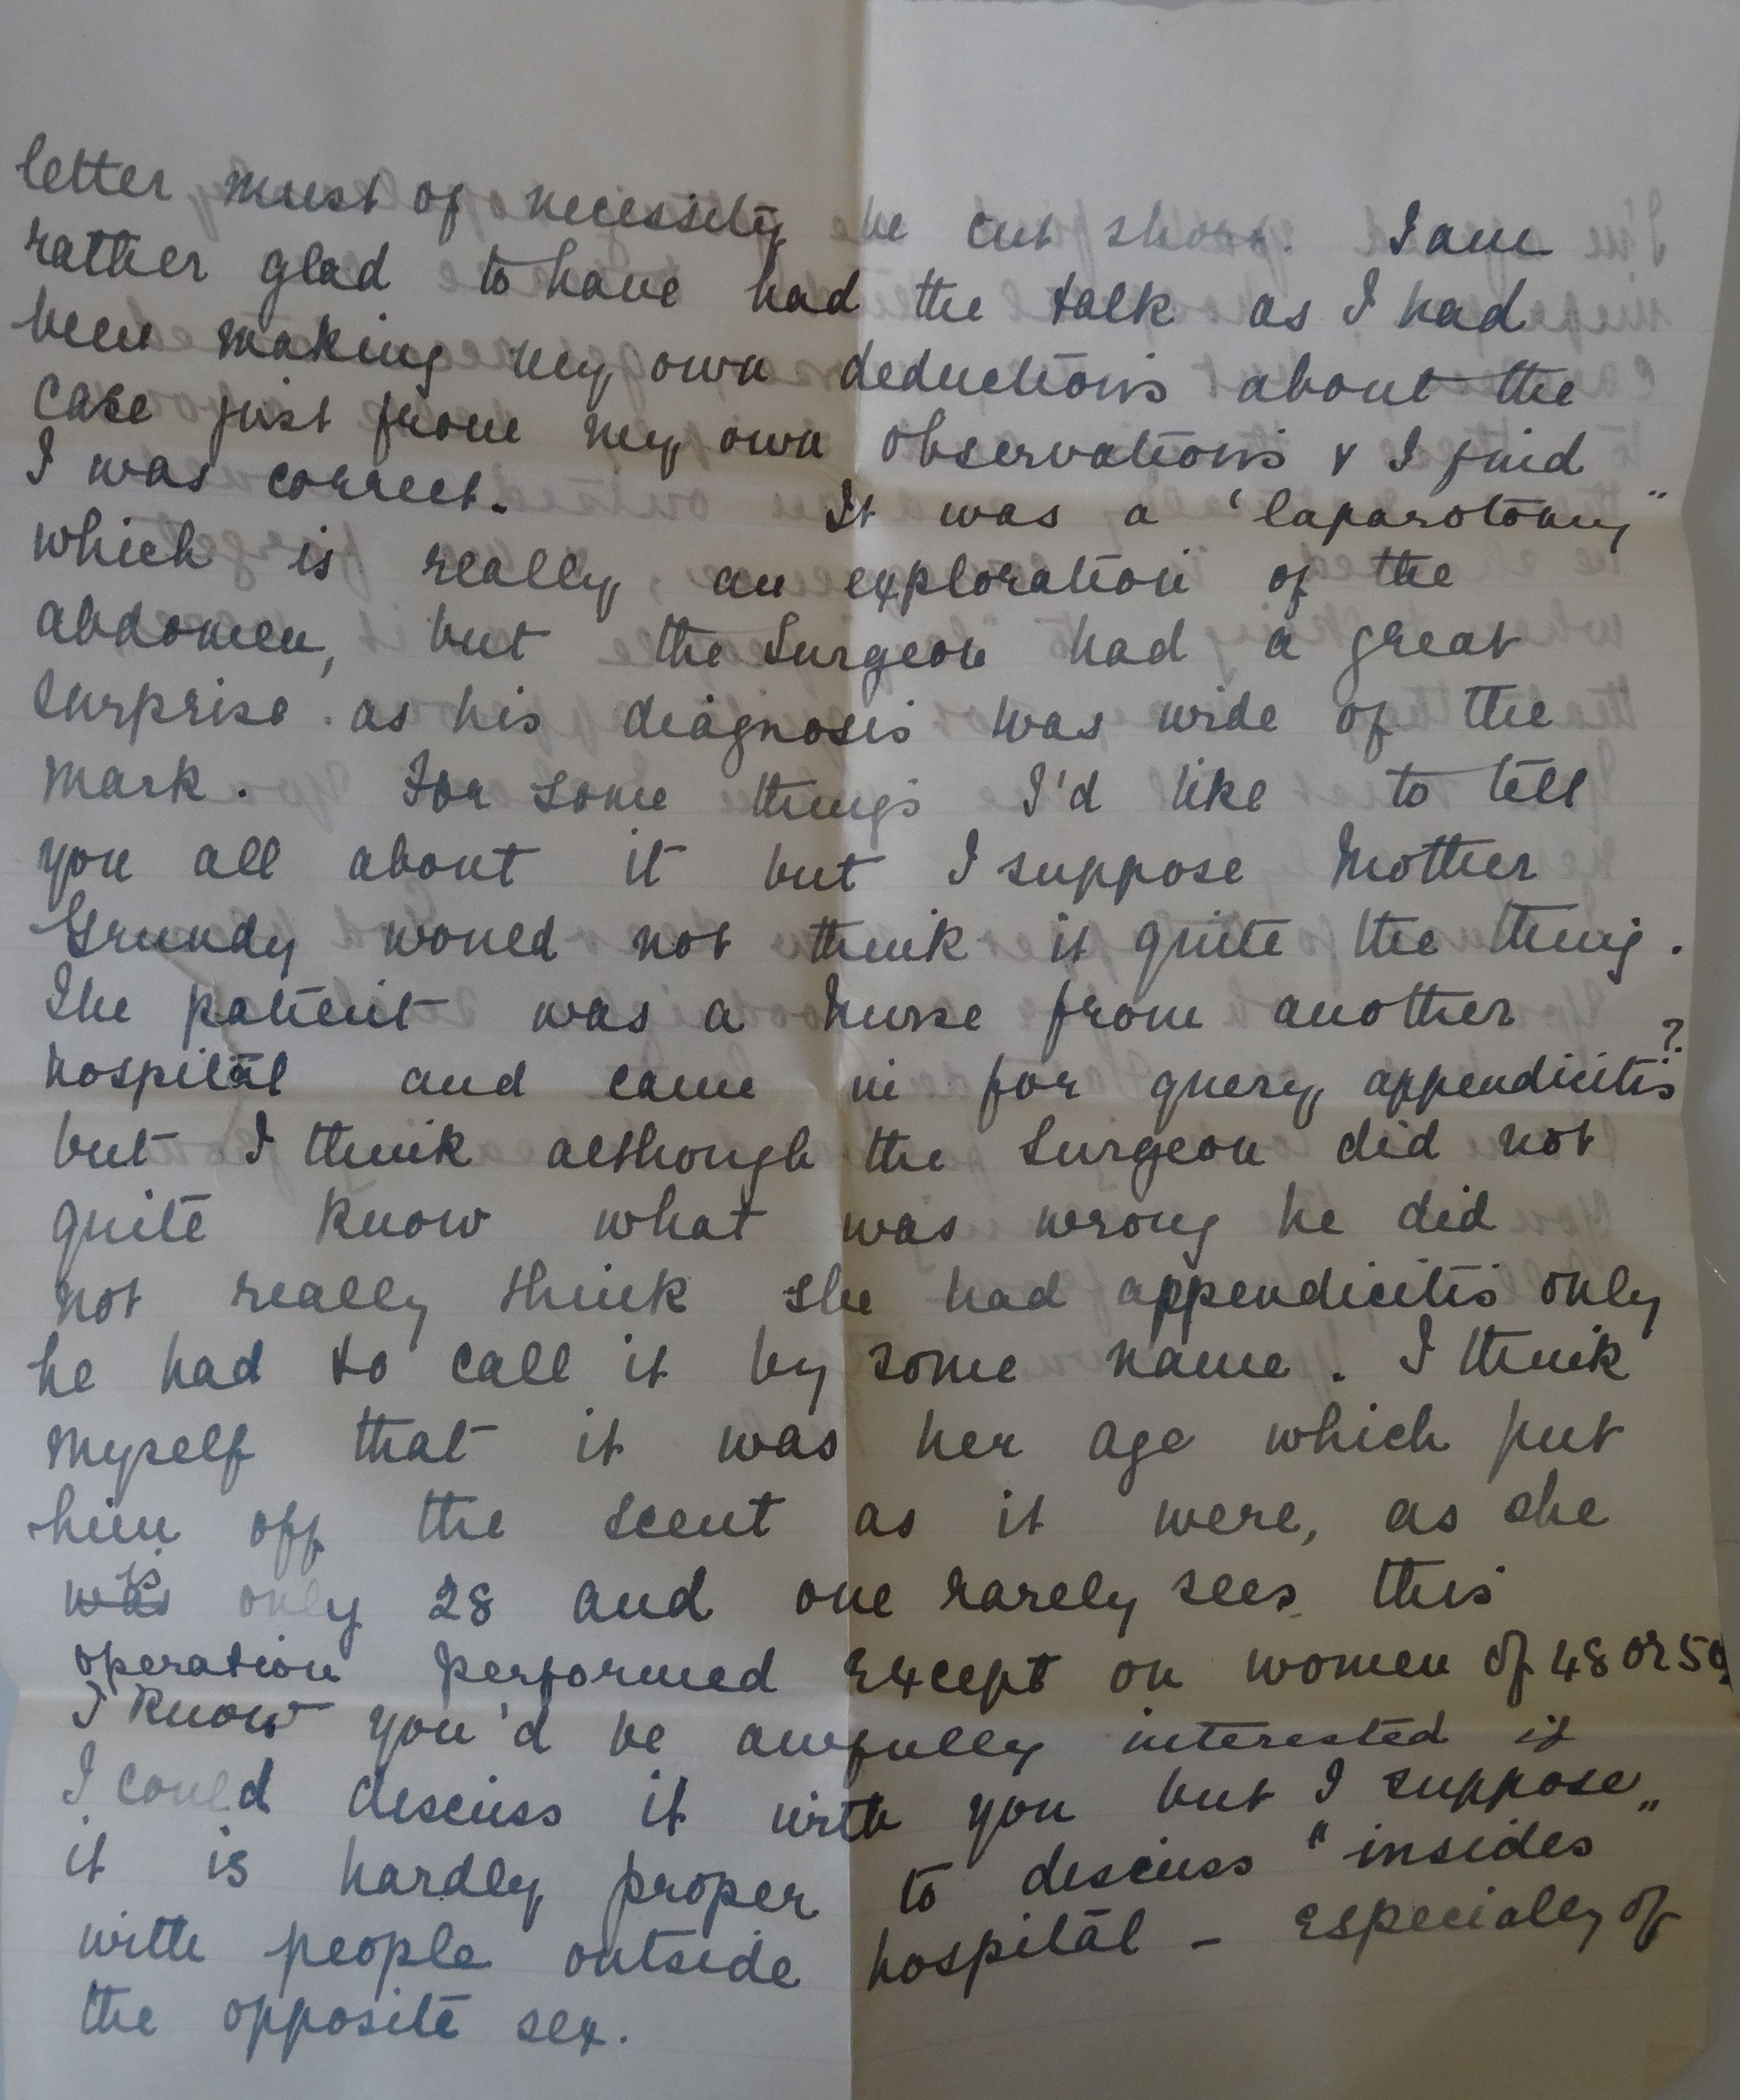 letter must of necessity be cut short. I am
rather glad to have had the talk as I had
been making my own deductions about the
case just from my own observations & I find
I was correct. It was a "laparotomy"
which is really an exploration of the
abdomen, but the Surgeon had a great
surprise. as his diagnosis was wide of the
mark. For some things I'd like to tell
you all about it but I suppose Mother
Grundy would not think it quite the thing.
The patient was a nurse from another
hospital and came in for query appendicitis?
but I think although the Surgeon did not
quite know what was wrong he did
not really think she had appendicitis only
he had to call it by some name. I think
myself that it was her age which put
him off the scent as it were, as she
was is only 28 and one rarely sees this
operation performed except on women of 48 or 50.
I know you'd be awfully interested if
I could discuss it with you but I suppose
it is hardly proper to discuss "insides"
with people outside hospital - especially of
the opposite sex.